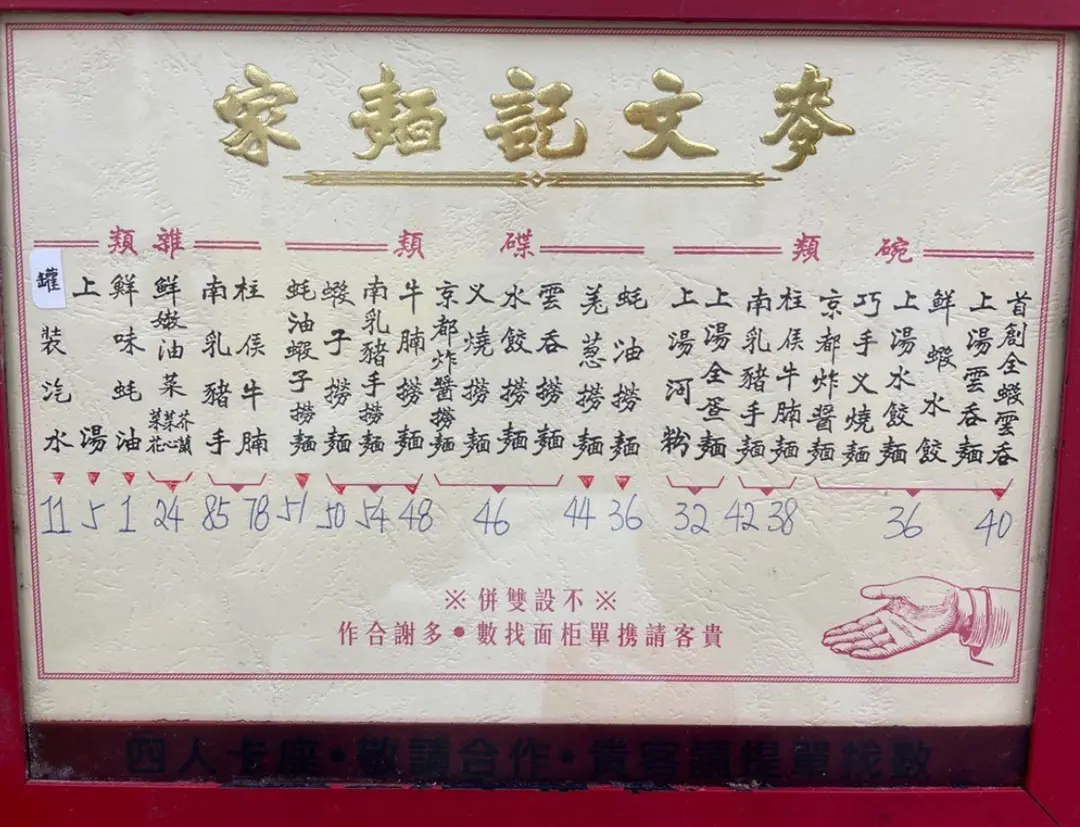 麥文記麵家
碗類
首創全蝦雲吞
上湯雲吞麵
40
鮮蝦水餃
上湯水餃麵
巧手义燒麵
京都炸醬麵
36
柱侯牛腩麵
38
南乳豬手麵
42
上湯全蛋麵
上湯河粉
32
碟類
蚝油撈麵
36
羗葱撈麵
44
雲吞撈麵
水餃撈麵
义燒撈麵
京都炸醬撈麵
46
牛腩撈麵
48
南乳豬手撈麵
54
蝦子撈麵
50
蚝油蝦子撈麵
51
雜類
柱侯牛腩
78
南乳豬手
85
鮮嫩油菜
芥蘭
菜心
菜花
24
鮮味蚝油
1
上湯
5
罐装汽水
11
※不設雙併※
貴客請携單柜面找數•多謝合作
四人卡座•敬請合作•貴客請提單找數